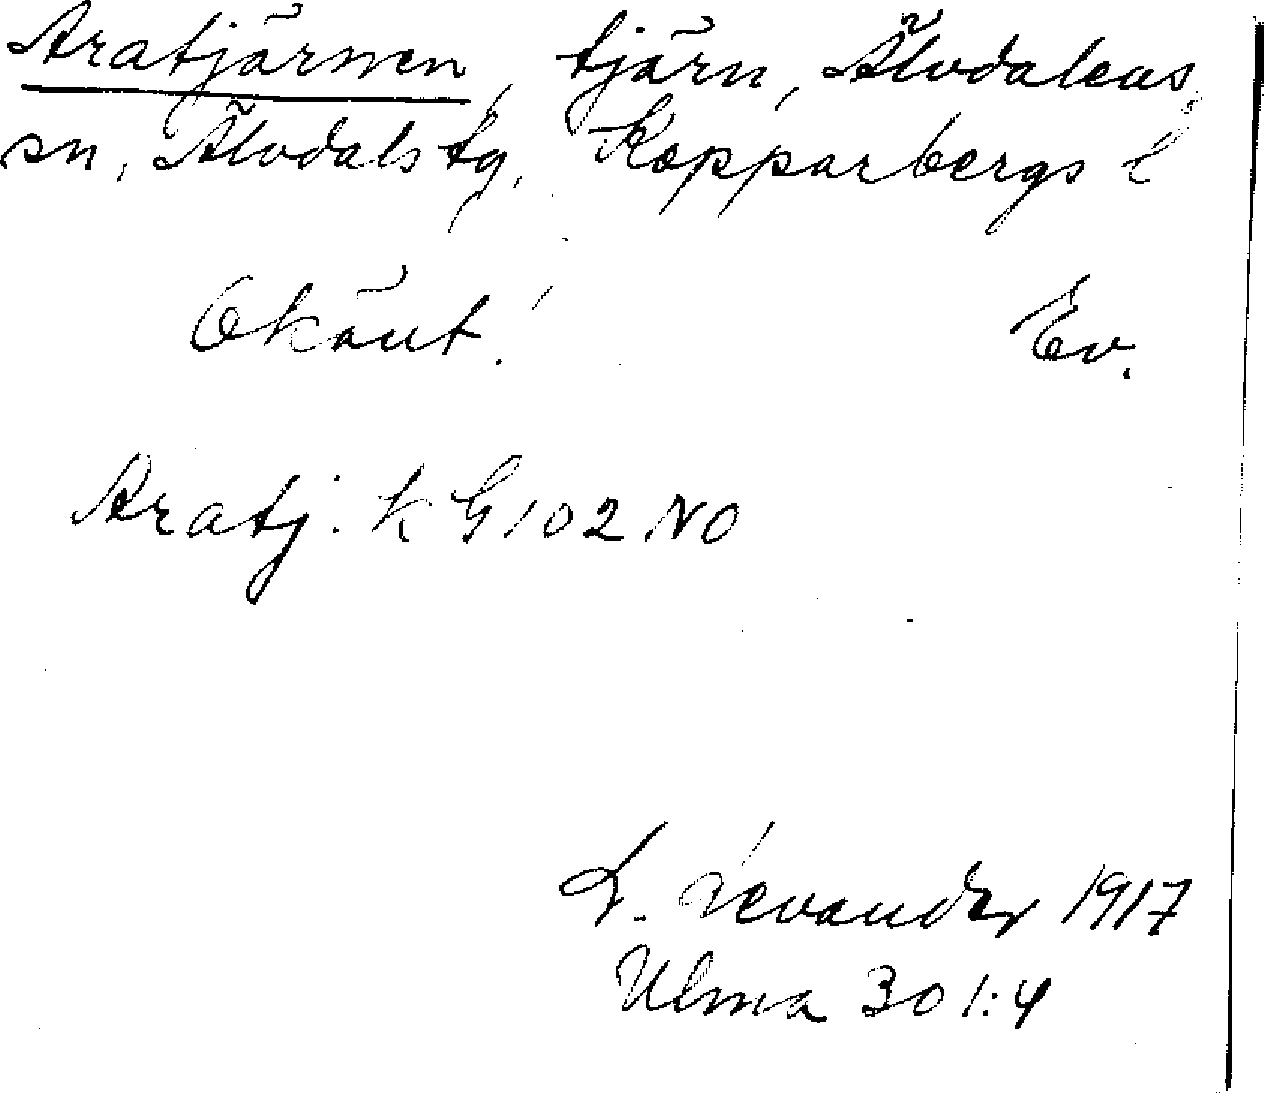 Aratjärnen, tjärn, Älvdalens
sn, Älvdals tg, Kopparbergs l
Okänt! Ev.
Aratj. k G 102 NO
L. Levander 1917
Ulma 301:4